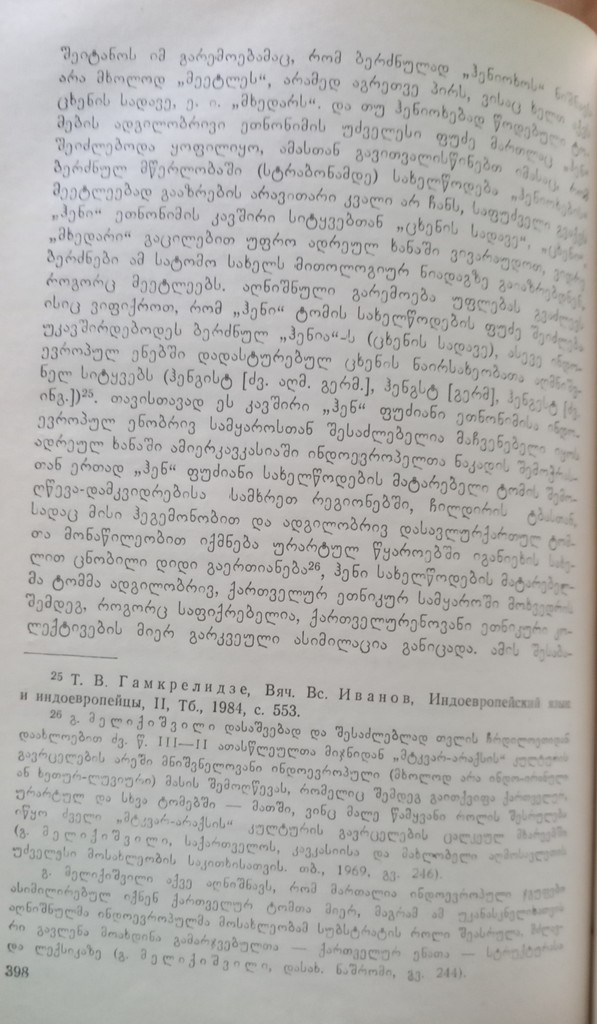 შეიტანოს იმ გარემოებამაც, რომ ბერძნულად „ჰენიოხოს“ ნიშნავს
არა მხოლოდ „მეეტლეს“, არამედ აგრეთვე პირს, ვისაც ხელთ აქვს
ცხენის სადავე, ე. ი. „მხედარს“. და თუ ჰენიოხებად წოდებული
მების ადგილობრივი ეთნონიმის უძველესი ფუძე მართლაც „ჰენი“
შეიძლებოდა ყოფილიყო, ამასთან გავითვალისწინებთ იმასაც, რომ
ბერძნულ მწერლობაში (სტრაბონამდე) სახელწოდება „ჰენიოხების“
მეეტლეებად გააზრების არავითარი კვალი არ ჩანს, საფუძველი გვაქვს
„ჰენი“ ეთნონიმის კავშირი სიტყვებთან „ცხენის სადავე“, „ცხენი“
„მხედარი“ გაცილებით უფრო ადრეულ ხანაში ვივარაუდოთ, ვიდრე
ბერძნები ამ სატომო სახელს მითოლოგიურ ნიადაგზე გაიაზრებდნენ,
როგორც მეეტლეებს. აღნიშნული გარემოება უფლებას გვაძლევს
ისიც ვიფიქროთ, რომ „ჰენი“ ტომის სახელწოდების ფუძე შეიძლება
უკავშირდებოდეს ბერძნულ „ჰენია“-ს (ცხენის სადავე), ასევე ინდო-
ევროპულ ენებში დადასტურებულ ცხენის ნაირსახეობათა აღმნიშვ-
ნელ სიტყვებს (ჰენგისტ [ძვ. აღმ. გერმ.], ჰენგსტ [გერმ], ჰენგესტ [ძვ.
ინგ.])²⁵. თავისთავად ეს კავშირი „ჰენ“ ფუძიანი ეთნონიმისა ინდო-
ევროპულ ენობრივ სამყაროსთან შესაძლებელია მაჩვენებელი იყოს
ადრეულ ხანაში ამიერკავკასიაში ინდოევროპელთა ნაკადის შემოჭრას-
თან ერთად „ჰენ“ ფუძიანი სახელწოდების მატარებელი ტომის შემო-
ღწევა-დამკვიდრებისა სამხრეთ რეგიონებში, ჩილდირის ტბასთან,
სადაც მისი ჰეგემონობით და ადგილობრივ დასავლურქართულ ტომ-
თა მონაწილეობით იქმნება ურარტულ წყაროებში იგანიეხის სახე-
ლით ცნობილი დიდი გაერთიანება²⁶, ჰენი სახელწოდების მატარებელ-
მა ტომმა ადგილობრივ, ქართველურ ეთნიკურ სამყაროში მოხვედრის
შემდეგ, როგორც საფიქრებელია, ქართველურენოვანი ეთნიკური კო-
ლექტივების მიერ გარკვეული ასიმილაცია განიცადა. ამის შესაბა-
²⁵ Т. В. Гамкрелидзе, Вяч. Вс. Иванов, Индоевропейский язык
и индоевропейцы, II, Тб., 1984, с. 553.
²⁶ გ. მელიქიშვილი დასაშვებად და შესაძლებლად თვლის ჩრდილოეთიდან
დაახლოებით ძვ. წ. III—II ათასწლეულთა მიჯნიდან „მტკვარ-არაქსის“ კულტურის
გავრცელების არეში მნიშვნელოვანი ინდოევროპული (მხოლოდ არა ინდო-ირანული
ან ხეთურ-ლუვიური) მასის შემოღწევას, რომელიც შემდეგ გაითქვიფა ქართველურ,
ურარტულ და სხვა ტომებში — მათში, ვინც მალე წამყვანი როლის შესრულება
იწყო ძველი „მტკვარ-არაქსის“ კულტურის გავრცელების ცალკეულ მხარეებში
(გ. მელიქიშვილი, საქართველოს, კავკასიისა და მახლობელი აღმოსავლეთის
უძველესი მოსახლეობის საკითხისათვის. თბ., 1969, გვ. 246).
გ. მელიქიშვილი აქვე აღნიშნავს, რომ მართალია ინდოევროპული ჯგუფები
ასიმილირებულ იქნენ ქართველურ ტომთა მიერ, მაგრამ ამ უკანასკნელთათვის
აღნიშნულმა ინდოევროპულმა მოსახლეობამ სუბსტრატის როლი შეასრულა,
რი გავლენა მოახდინა გამარჯვებულთა — ქართველურ ენათა — სტრუქტურასა
და ლექსიკაზე (გ. მელიქიშვილი, დასახ. ნაშრომი, გვ. 244).
398